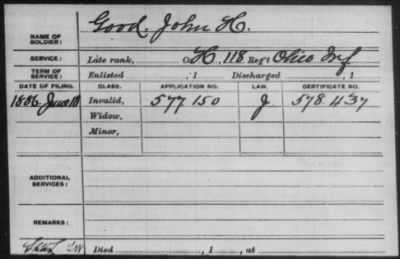 NAME OF SOLDIER: Good, John H.
SERVICE: Late rank, Co H, 118 Reg't Ohio Inf
TERM OF SERVICE: Enlisted , 1 Discharged , 1
DATE OF FILING. CLASS. APPLICATION NO. LAW. CERTIFICATE NO.
1886 June Invalid, 577 150 J. 578.437
Widow,
Minor,
ADDITIONAL SERVICES:
REMARKS:
Died , 1 , at